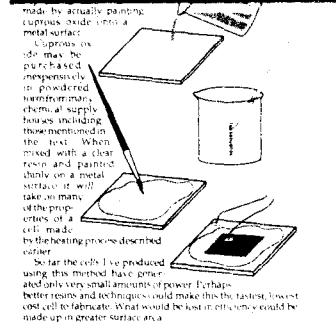 made by actually painting
cuprous oxide onto a
metal surface
Cuprous ox-
ide may be
purchased
inexpensively
in powdered
form from many
chemical supply
houses including
those mentioned in
the text. When
mixed with a clear
resin and painted
thinly on a metal
surface it will
take on many
of the prop-
erties of a
cell made
by the heating process described
earlier
So far the cells I've produced
using this method have gener-
ated only very small amounts of power. Perhaps
better resins and techniques could make this the fastest, lowest
cost cell to fabricate. What would be lost in efficiency could be
made up in greater surface area